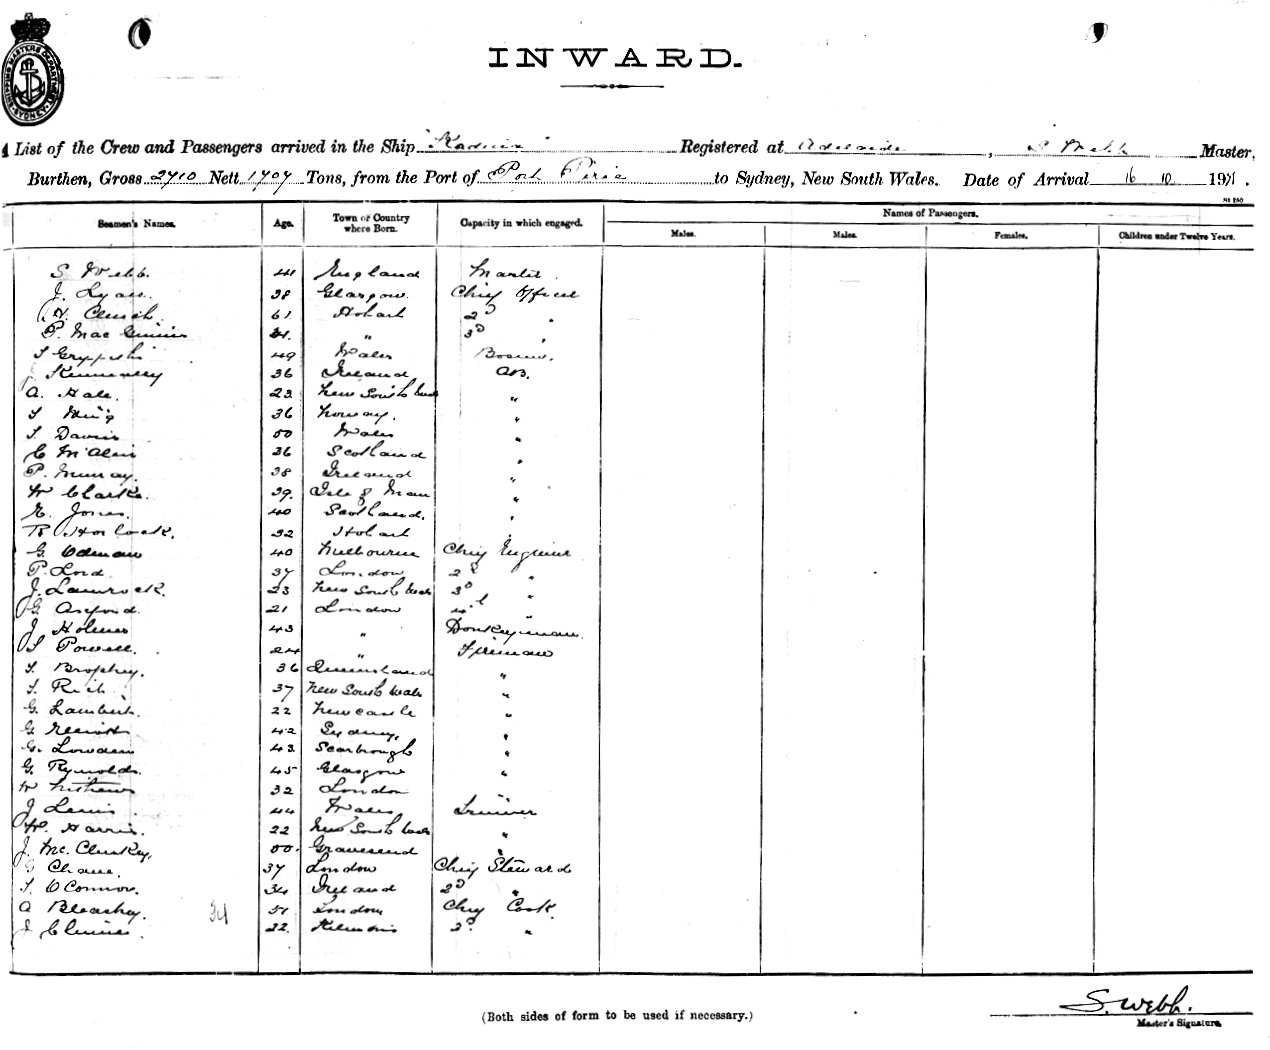 SHIPPING MASTERS DEPARTMENT SYDNEY
INWARD.
List of the Crew and Passengers arrived in the Ship "Kadina" Registered at Adelaide, S Webb Master,
Burthen, Gross 2710 Nett 1707 Tons, from the Port of Port Pirie to Sydney, New South Wales. Date of Arrival 16 10 19
Seamen's Names. Age. Town or Country where Born. Capacity in which engaged. Names of Passengers.
Males. Males. Females. Children under Twelve Years.
S Webb. 41 England Master.
J. Lyall. 38 Glasgow. Chief Officer
H. 61 Hobart 2D "
P. Mac 21. " 3D "
49 Wales Bosun.
Kenneally 36 Ireland AB.
A. Hale. 23 New South Wales "
King 36 Norway. "
Davis 50 Wales "
C McAlein 36 Scotland "
P. Murray. 38 Ireland "
W Clarke. 39. Isle of Man "
E. Jones. 40 Scotland. "
R Horlock. 32 Hobart
G. Odman 40 Melbourne Chief Engineer
P. Lord 37 London 2D "
J. 23 New South Wales 3D "
G. Axford. 21 London 4th "
J Holmes 43 " Donkeyman
Powell. 24 " Fireman
Brophy. 36 Queensland "
Rich 37 New South Wales "
G. Lambert. 22 Newcastle "
G 42 Sydney, "
G. Lowden 43 Scarbrough "
G. Reynolds. 45 Glasgow "
W 32 London "
J Lewis 44 Wales Trimmer
W. Harris. 22 New South Wales "
J. McCluskey, 50. Gravesend "
37 London Chief Steward
O'Connor. 34 Ireland 2D "
A 51 London Chief Cook
22. 2D "
34
S. Webb.
(Both sides of form to be used if necessary.)
Master's Signature.